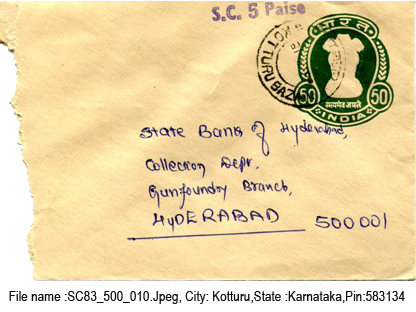 S.C. 5 Paise
भारत
KOTTURU BAZ
50 50
सत्यमेव जयते
INDIA
State Bank of Hyderabad,
Collection Dept.
Gunfoundry Branch,
HYDERABAD 500001
File name :SC83_500_010.Jpeg, City: Kotturu,State :Karnataka,Pin:583134